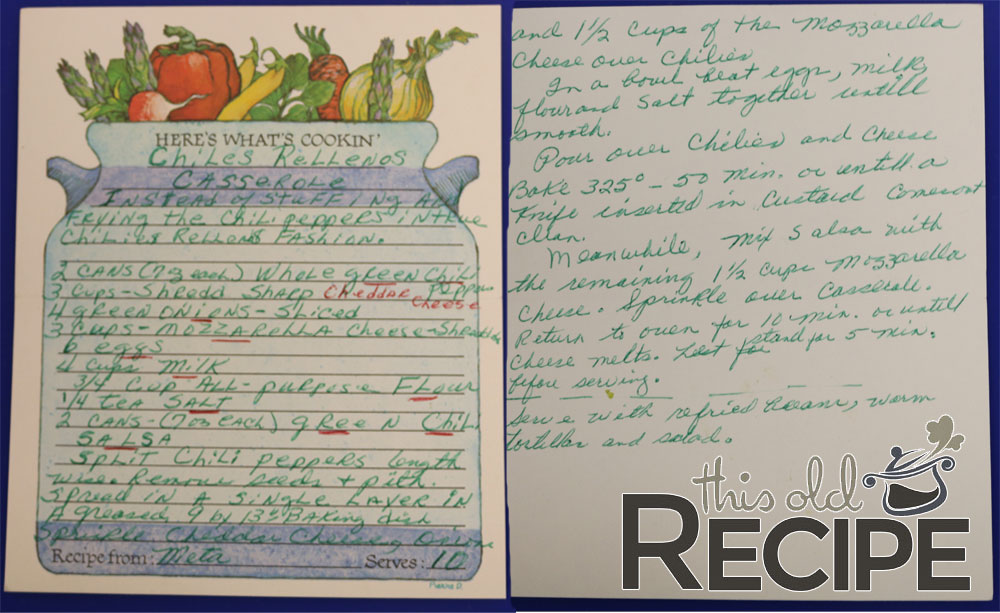 HERE'S WHAT'S COOKIN'
Chiles Rellenos
Casserole
Instead of stuffing
Frying the Chili peppers in true
Chilies Rellens Fashion.
2 cans (7oz each) Whole green Chili
peppers
3 cups - Shredd Sharp Cheddar
Cheese
4 green onions - Sliced
3 cups - Mozzarella Cheese - Shredded
6 eggs
4 cups Milk
3/4 cup All-purpose Flour
1/4 tea Salt
2 cans - (7oz each) green Chili
Salsa
Split Chili peppers length
wise. Remove seeds + pith.
Spread in a single layer in
A greased 9 by 13" Baking dish
Sprinkle Cheddar Cheese
Recipe from: Meta Serves: 10
Pierre D.
and 1½ cups of the Mozzarella
Cheese over Chilies
In a bowl beat eggs, milk,
flour and Salt together untill
smooth.
Pour over Chilies and Cheese
Bake 325° - 50 min. or untill a
Knife inserted in Custard comes out
clean.
Meanwhile, mix Salsa with
the remaining 1½ cups Mozzarella
Cheese. Sprinkle over Casserole.
Return to oven for 10 min. or untill
Cheese melts. Let stand for 5 min.
before serving.
Serve with refried beans, warm
tortillas and salad.
this old
RECIPE